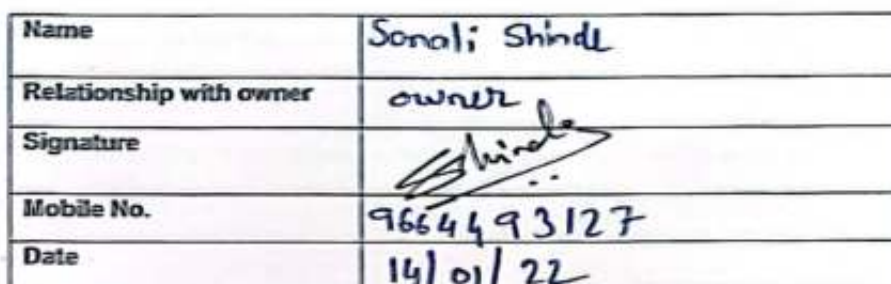 Name Sonali Shinde
Relationship with owner owner
Signature SShinde
Mobile No. 9664493127
Date 14/01/22